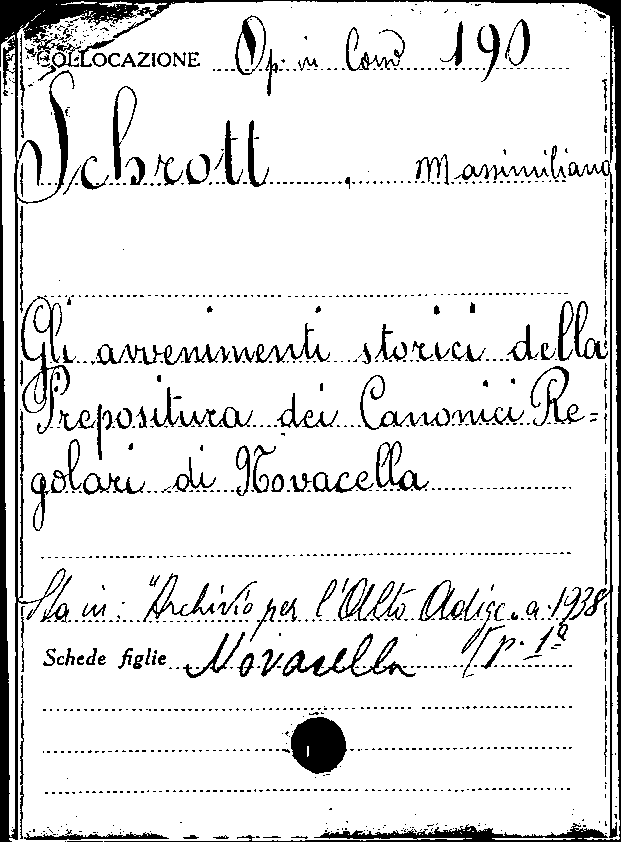 COLLOCAZIONE Op. in Cond 190
Schrott, Massimiliano
Gli avvenimenti storici della
Prepositura dei Canonici Re-
golari di Novacella
Sta in: "Archivio per l'Alto Adige" a. 1938
Schede figlie Novacella [p. 1ª